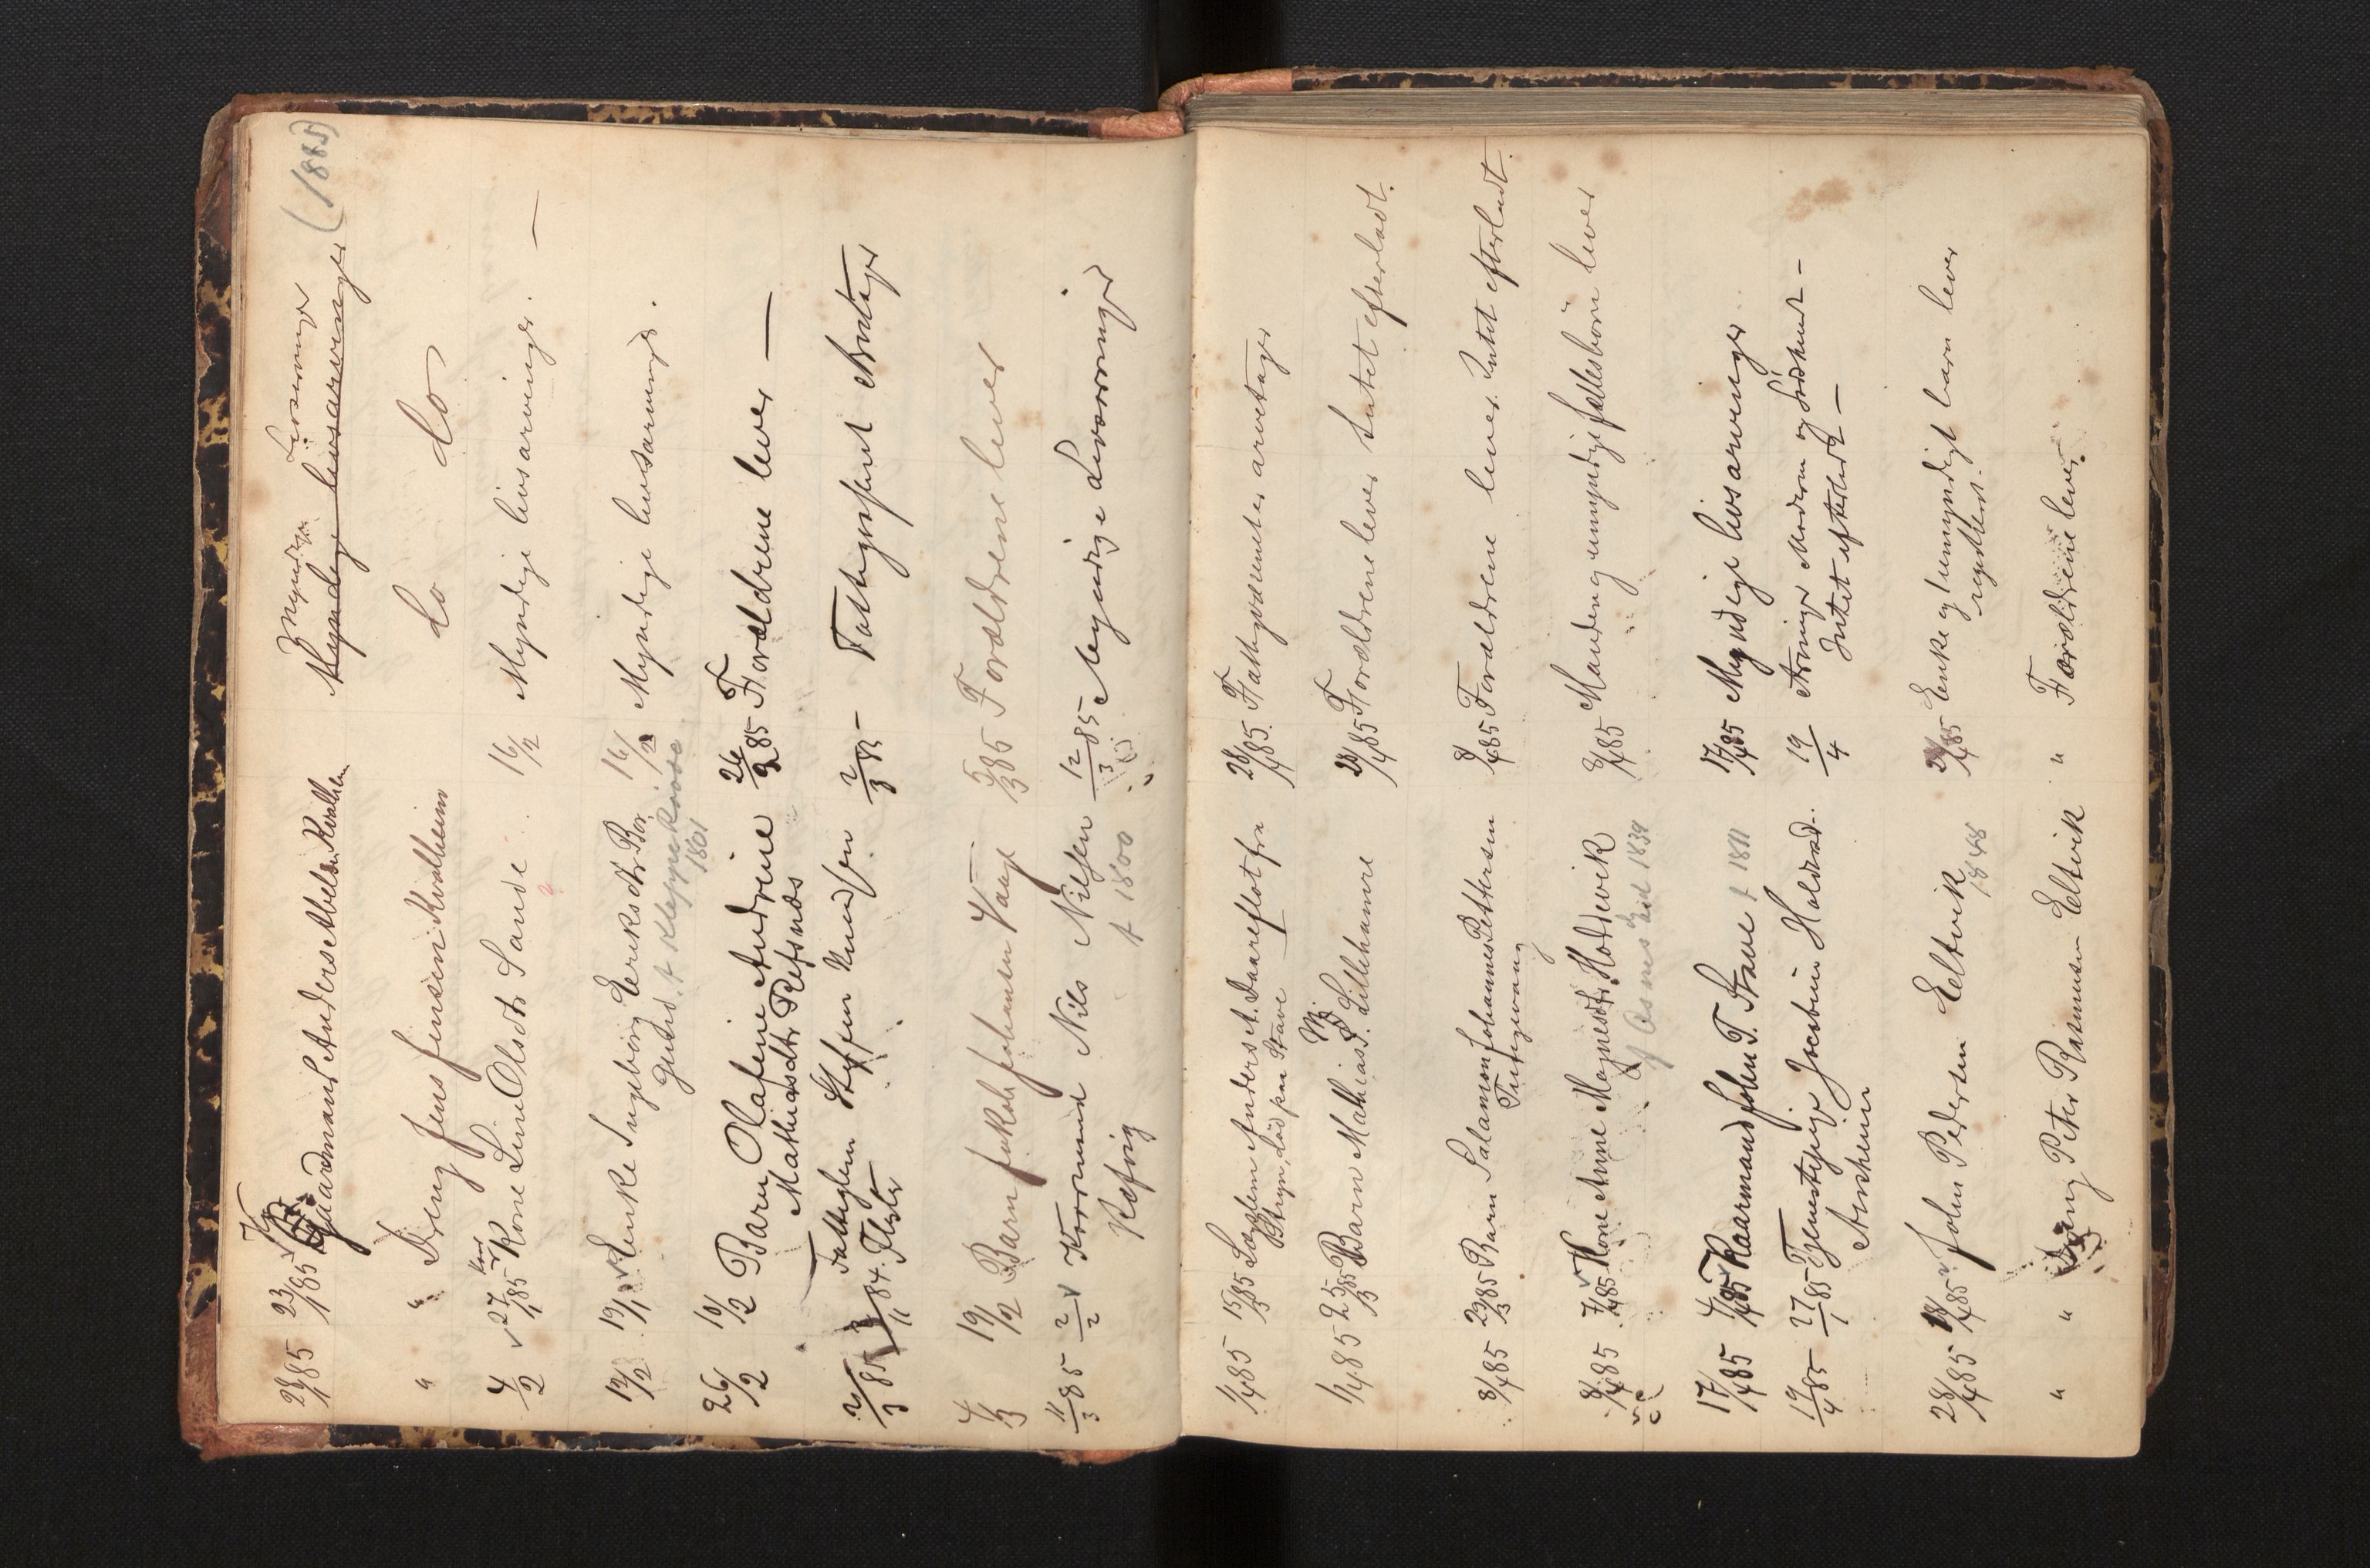 (1885)
28/1 85 23/1 85 Gaardmand Anders Abels. Kvalheim Myndige Livsarvinger
Myndige livsarvinger
" " Dreng Jens Jensen Kvalheim do do
4/2 27/1 85 Kone Line Olsdtr Sande 16/2 Myndige livsarvinger. —
12/2 19/1 Enke Ingeborg Eriksdtr Bø 16/2 Myndige livsarvinger.
1801
26/2 10/2 Barn Olafine Andrine 26/2 85 Forældrene lever —
Mathiasdtr Refsnæs
2/3 85 /11 84. Fattiglem Steffen Knudsen 2/3 85 — Fattigvæsenet Arvtager
Flister
4/3 19/2 Barn Jakob Johansen Vaage 5/3 85 Forældrene lever
11/3 85 2/2 Kaarmand Nils Nilsen 12/3 85 Myndige Livsarvinger
Refvig † 1800
1/4 85 15/3 85 Lægdlem Anders A. Aareflot fra 28/4 85. Fattigvæsenet er arvetager
Stryn, død paa Stave
1/4 85 25/3 85 Barn Mathias M. Lillehamre 28/4 85 Forældrene lever Intet efterladt.
8/4 85 29/3 85 Barn Salamon Johannes Pettersen 8/4 85 Forældrene lever. Intet efterladt.
8/4 85 7/4 85 Kone Anne Magnesdtr. Hoddevik 8/4 85 Manden og umyndige fællesbørn lever
1839
17/4 85 4/4 85 Kaarmand John T. Stave † 1811 17/4 85 Myndige livsarvinger
19/4 85 27/1 85 Tjenestepige Jacobine Holdrad. 19/4 Arvinger Moderen og Sødskend —
Aarsheim Intet efterladt —
28/4 85 18/4 85 John Pedersen Eltvik 28/4 85 Enke og 1 umyndigt barn lever
1848
" " Dreng Peter Rasmusen Eltvik " Forældrene lever.